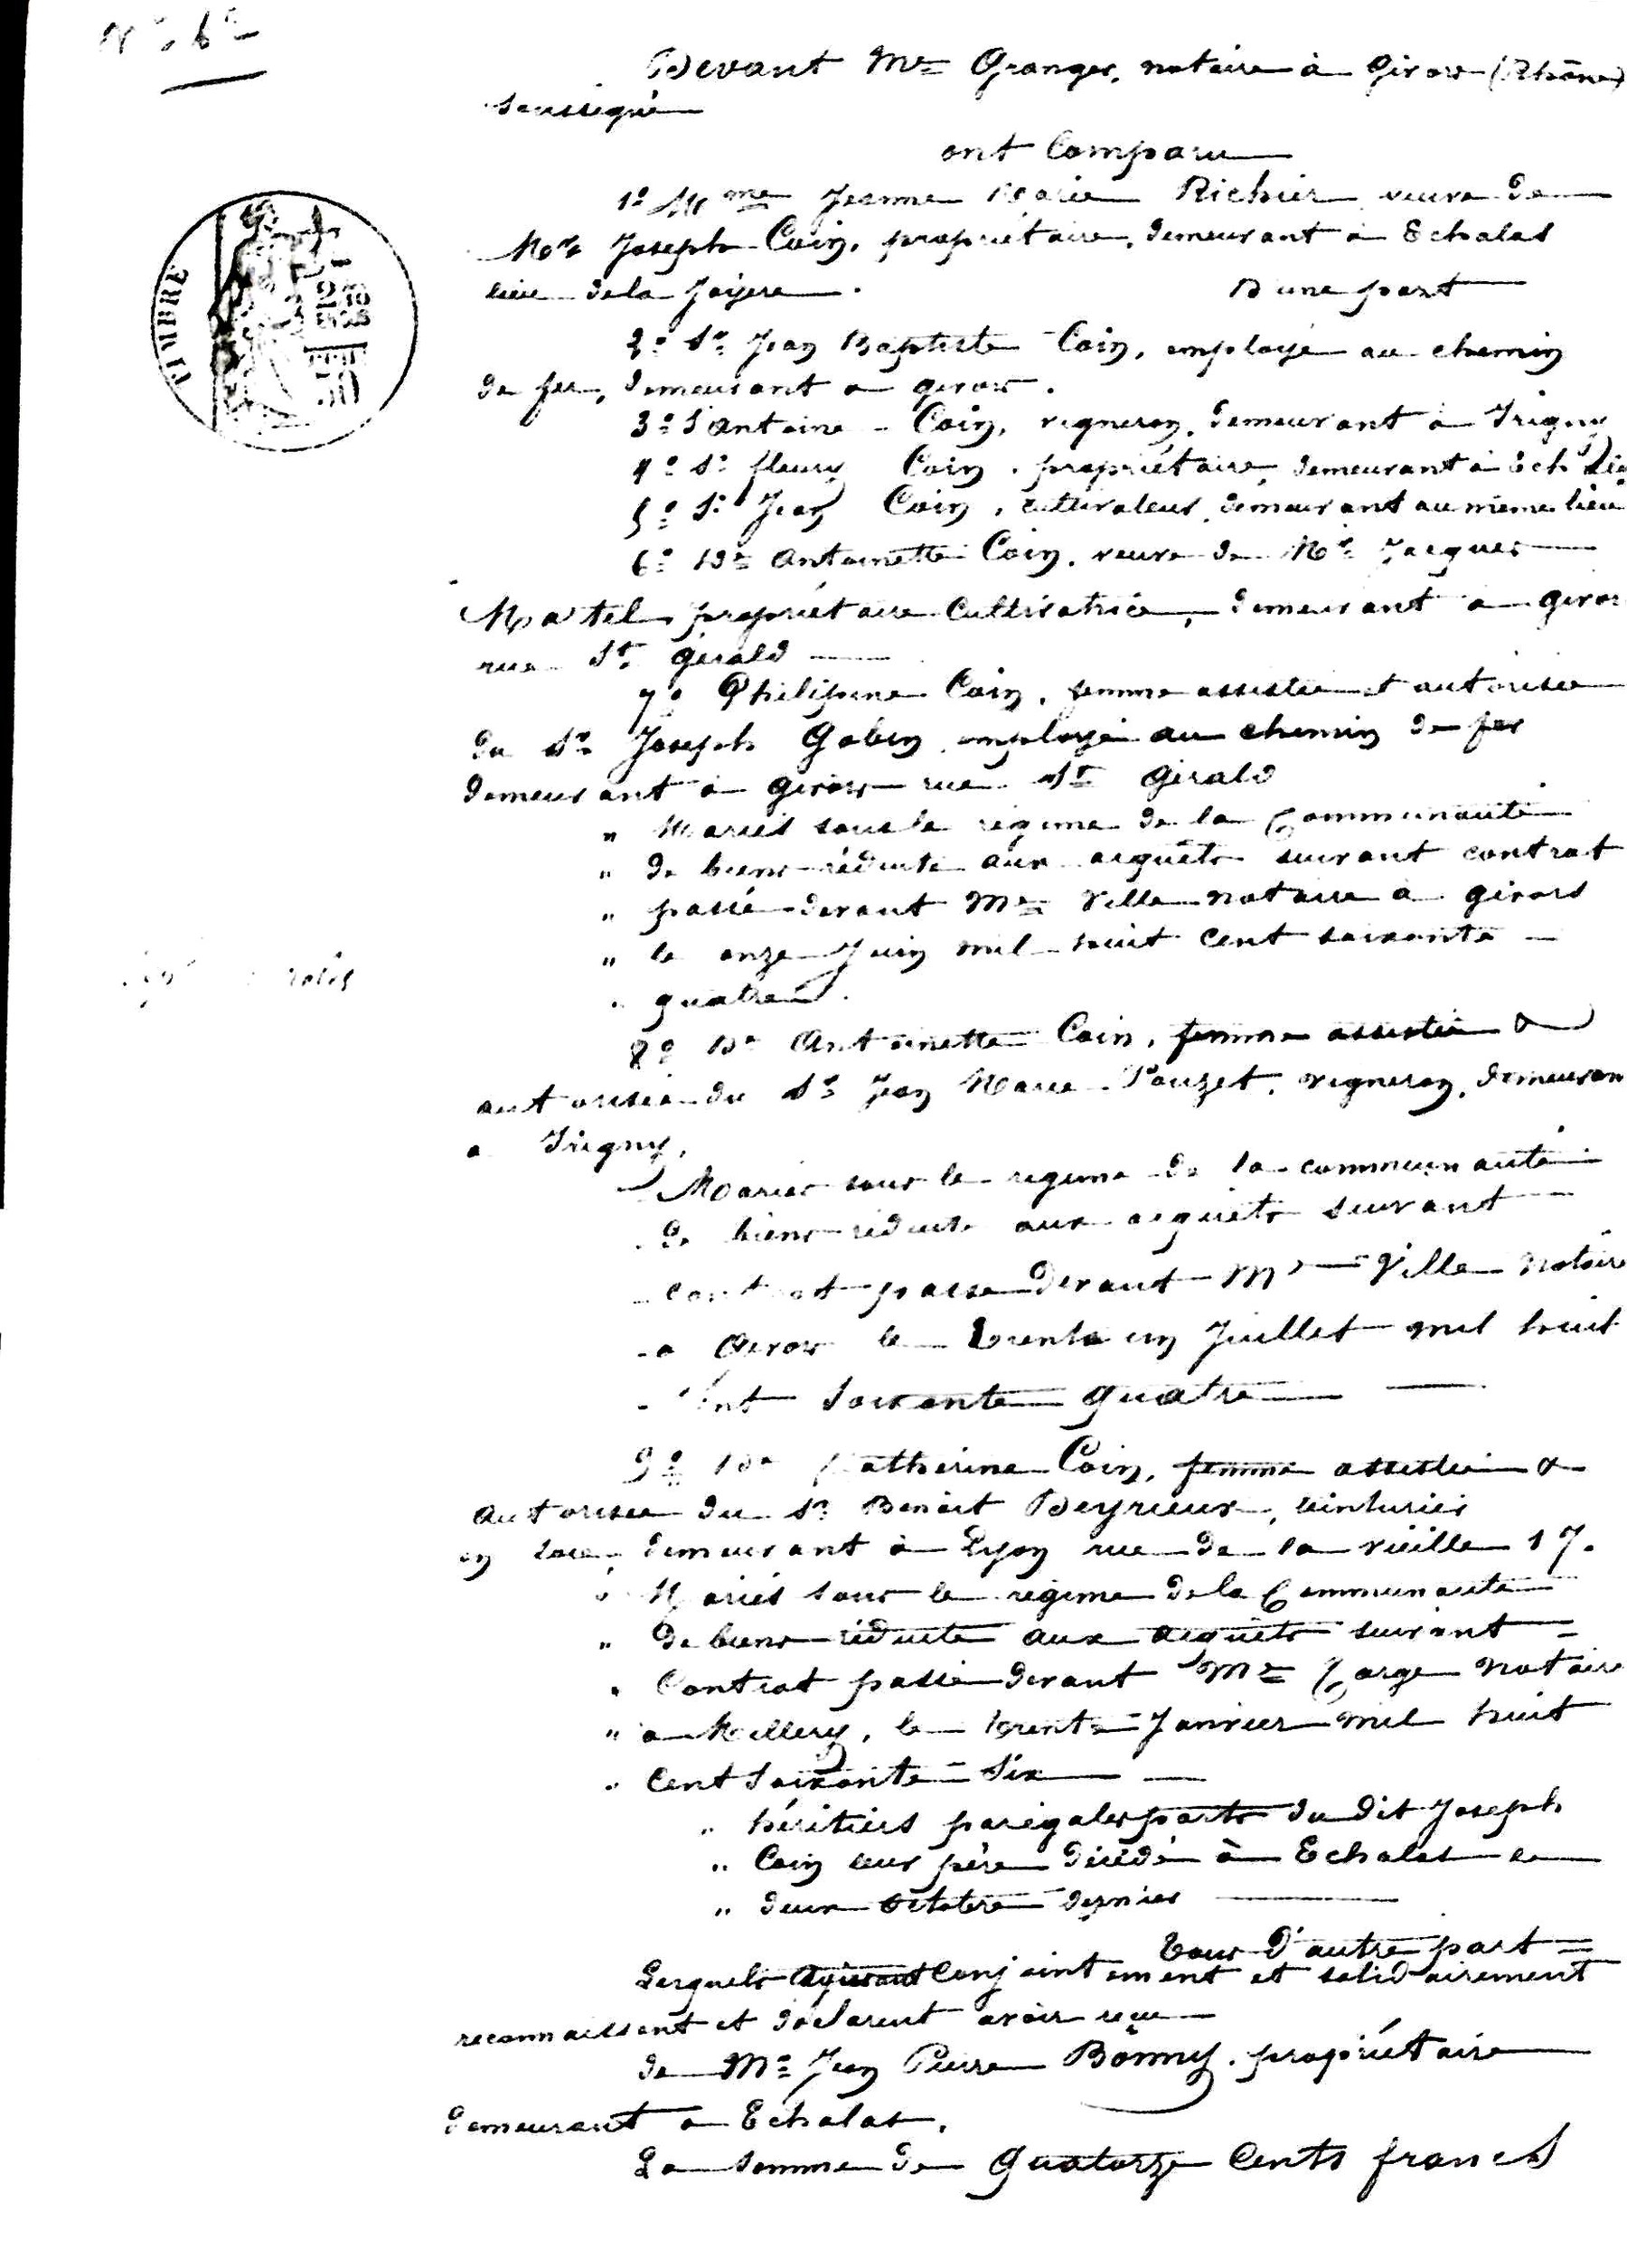 Devant Me Granger, notaire à Givors (Rhône)
soussigné
ont Comparu
1º Mme Jeanne Marie Richier veuve de
Mr Joseph Coin, propriétaire, demeurant à Echalas
lieu de la
D'une part
2º Sr Jean Baptiste Coin, employé au chemin
de fer, demeurant à Givors.
3º S Antoine Coin, vigneron, demeurant à Irigny
4º Sr fleury Coin, propriétaire, demeurant à
5º Sr Jean Coin, cultivateur, demeurant au même lieu
6º De Antoinette Coin, veuve de Mr Jacques
Martel propriétaire Cultivatrice, demeurant à Givors
rue St Gérald
7º Philipine Coin, femme assistée et autorisée
du Sr Joseph Gobin employé au chemin de fer
demeurant à Givors rue St Gérald
" Mariés sous le régime de la Communauté
" de biens réduite aux acquêts suivant contrat
" passé devant Me Ville notaire à Givors
" le onze Juin mil huit cent soixante
" quatre.
8º De Antoinette Coin, femme assistée &
autorisée du Sr Jean Marie Pouzet, vigneron, demeuran
à Irigny,
Mariés sous le régime de la communauté
de biens réduite aux acquêts suivant
contrat passé devant Me Ville notaire
à Givors le trente un Juillet mil huit
cent soixante quatre
9º De Catherine Coin, femme assistée &
autorisée du Sr Benoit Beyrieux, teinturier
en soie, demeurant à Lyon rue de la vieille 17.
" Mariés sous le régime de la Communauté
" de biens réduite aux acquêts suivant
" Contrat passé devant Me notaire
" à Millery, le trente Janvier mil huit
" Cent soixante Six
" héritiers par égales parts du dit Joseph
" Coin leur père décédé à Echalas le
" deux octobre dernier
Tous D'autre part
Lesquels agissant Conjointement et solidairement
reconnaissent et déclarent avoir reçu
de Mr Jean Pierre Bonny, propriétaire
demeurant à Echalas,
La somme de Quatorze Cents francs
TIMBRE